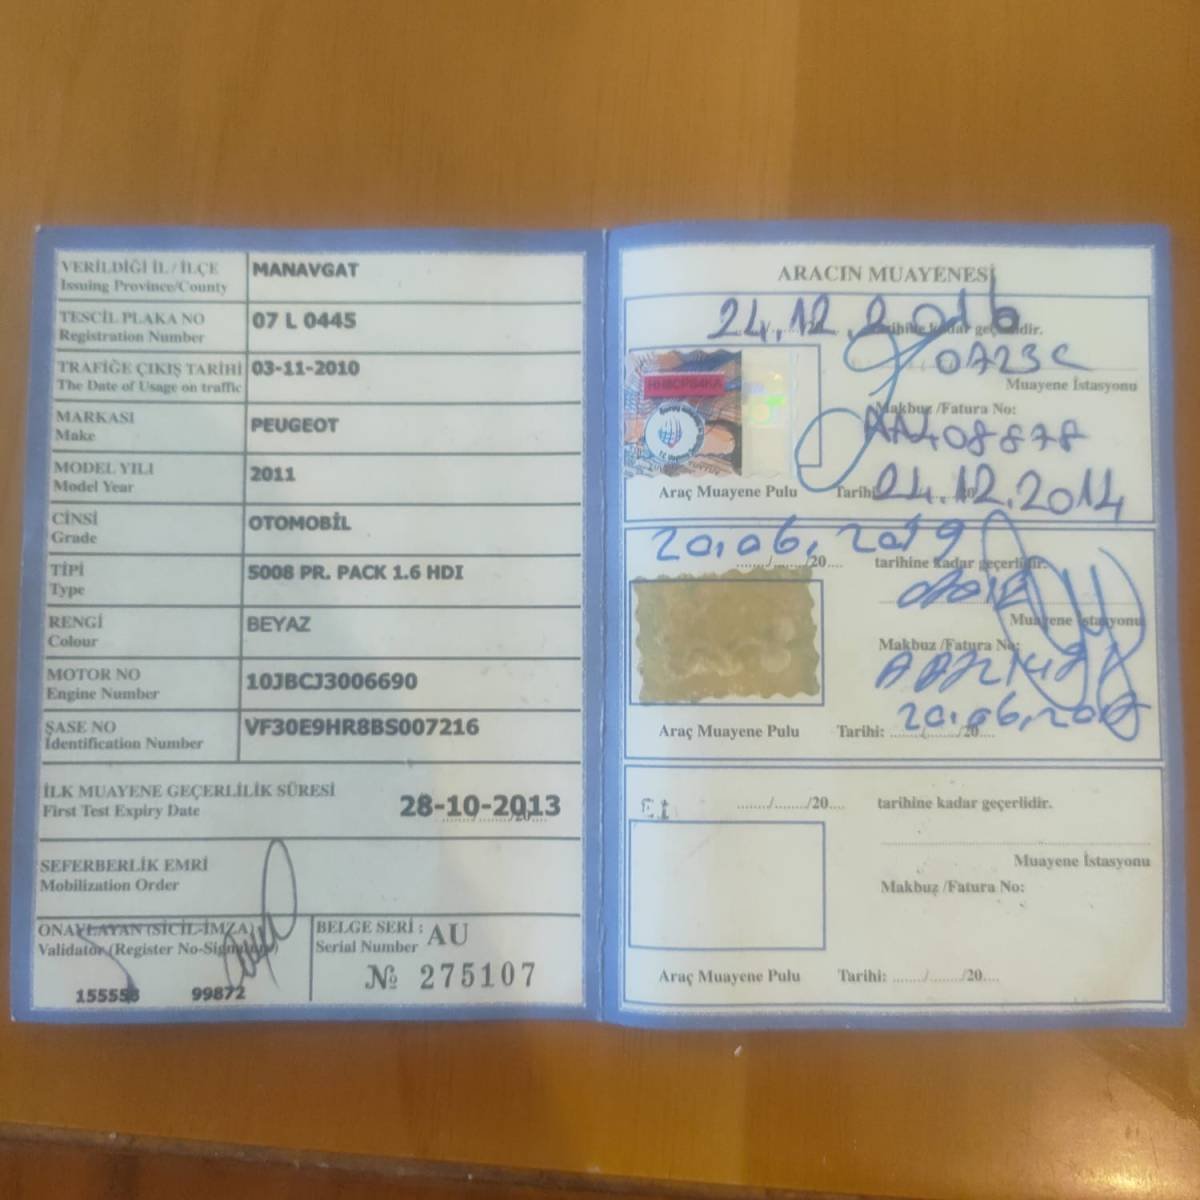 VERİLDİĞİ İL / İLÇE
Issuing Province/County
MANAVGAT
TESCİL PLAKA NO
Registration Number
07 L 0445
TRAFİĞE ÇIKIŞ TARİHİ
The Date of Usage on traffic
03-11-2010
MARKASI
Make
PEUGEOT
MODEL YILI
Model Year
2011
CİNSİ
Grade
OTOMOBİL
TİPİ
Type
5008 PR. PACK 1.6 HDI
RENGİ
Colour
BEYAZ
MOTOR NO
Engine Number
10JBCJ3006690
ŞASE NO
İdentification Number
VF30E9HR8BS007216
İLK MUAYENE GEÇERLİLİK SÜRESİ
First Test Expiry Date
28-10-2013
SEFERBERLİK EMRİ
Mobilization Order
ONAYLAYAN (SİCİL-İMZA)
Validator (Register No-Signature)
155558 99872
BELGE SERİ : AU
Serial Number
№ 275107
ARACIN MUAYENESİ
24.12.2016 tarihine kadar geçerlidir.
Muayene İstasyonu
Makbuz /Fatura No:
AA408878
Araç Muayene Pulu Tarihi 24.12.2014
20.06.2019
......./......./20.... tarihine kadar geçerlidir.
Muayene İstasyonu
Makbuz /Fatura No:
Araç Muayene Pulu Tarihi: ......./......./20....
......./......./20.... tarihine kadar geçerlidir.
Muayene İstasyonu
Makbuz /Fatura No:
Araç Muayene Pulu Tarihi: ......./......./20....